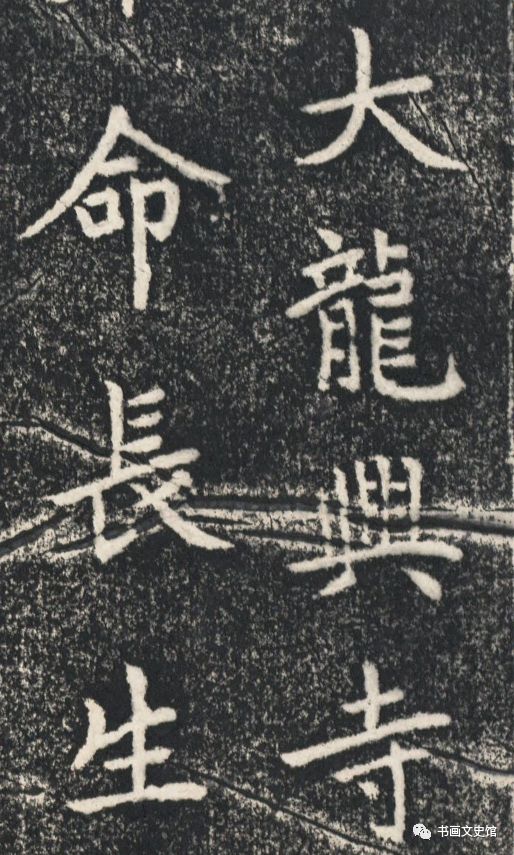 大龍興寺
命長生
书画文史馆